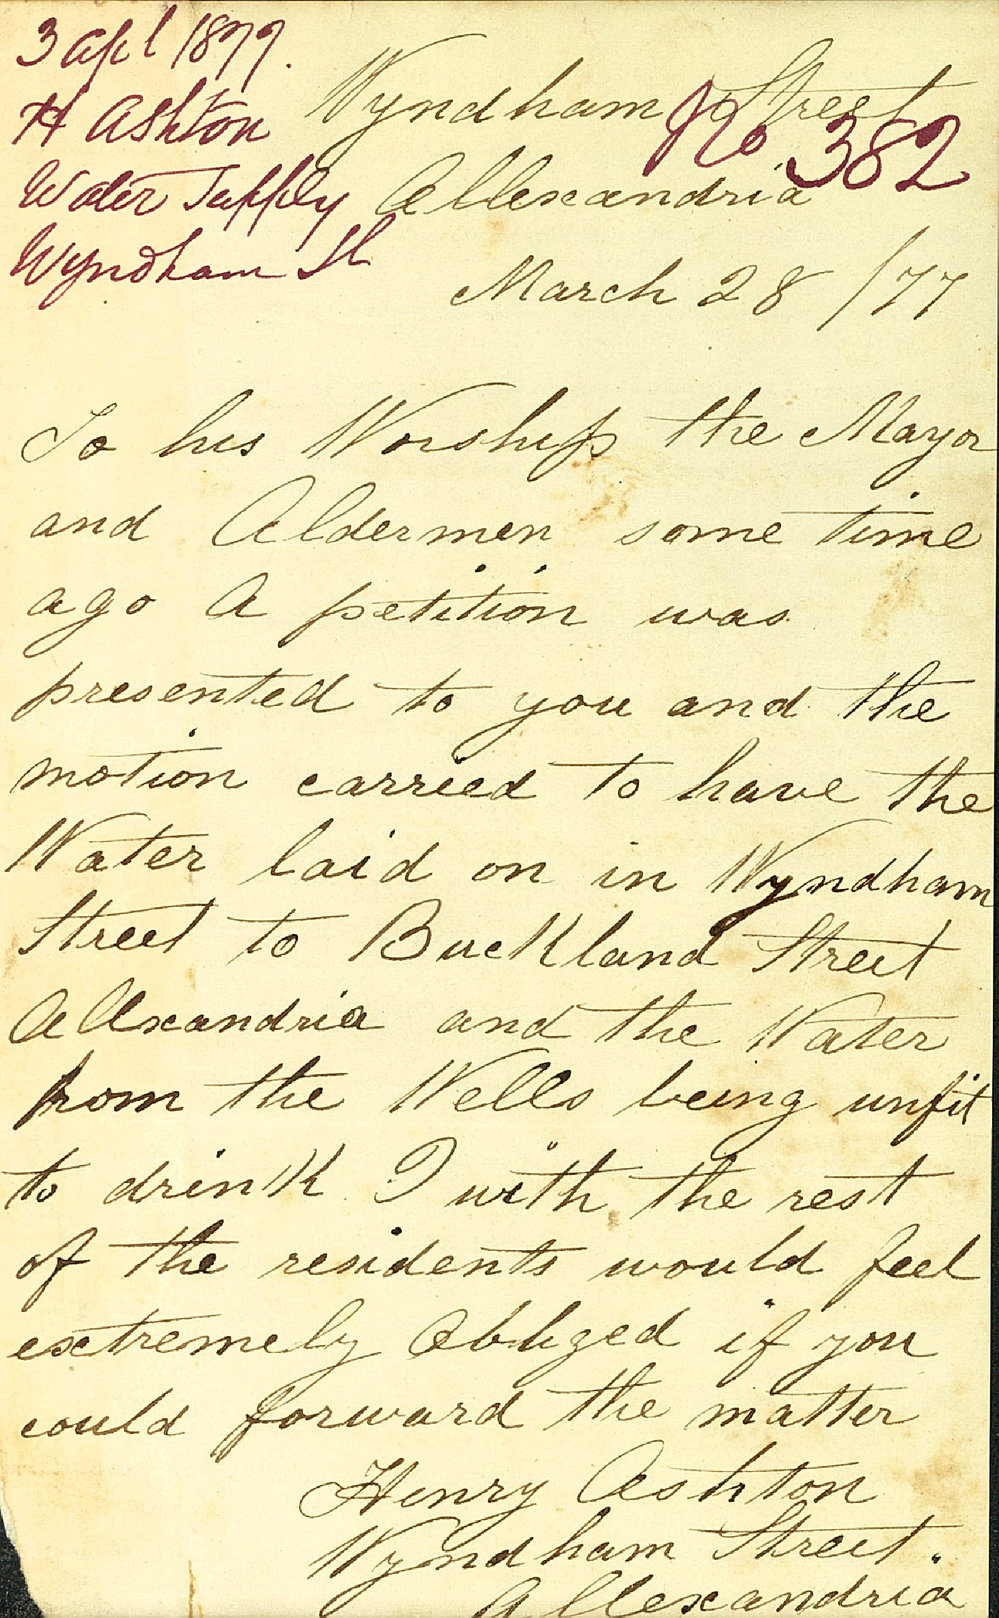 3 apl 1877.
H Ashton
Water Supply
Wyndham St
No 382
Wyndham Street
Allexandria
March 28 /77
To his Worship the Mayor
and Aldermen some time
ago A petition was
presented to you and the
motion carried to have the
Water laid on in Wyndham
Street to Buckland Street
Allexandria and the Water
from the Wells being unfit
to drink I with the rest
of the residents would feel
extremely Obliged if you
could forward the matter
Henry Ashton
Wyndham Street.
Allexandria